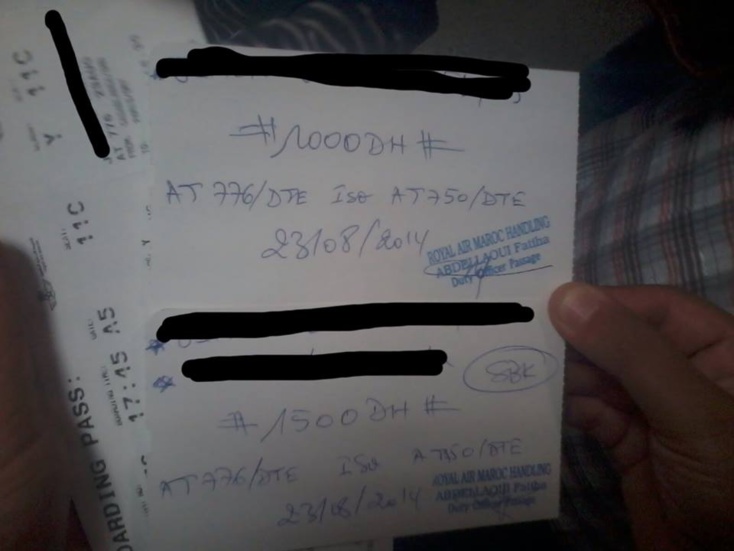 # 1000DH #
AT 776/DTE ISO AT750/DTE
23/08/2014
ROYAL AIR MAROC HANDLING
ABDELLAOUI Fatiha
Duty Officer Passage
SBK
# 1500DH #
AT776/DTE ISO AT750/DTE
23/08/2014
ROYAL AIR MAROC HANDLING
ABDELLAOUI Fatiha
Y 11C
AT 776
11C
17:15 A5
OARDING PASS: